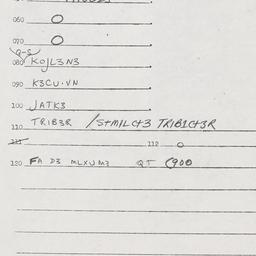 060 O
070 O
a-s
080 KOJL3N3
090 K3CU.VN
100 JATK3
110 TRIB3R /S+MILC+3 TRIB1C+3R
112 O
120 FA D3 MLXUM3 QT C900